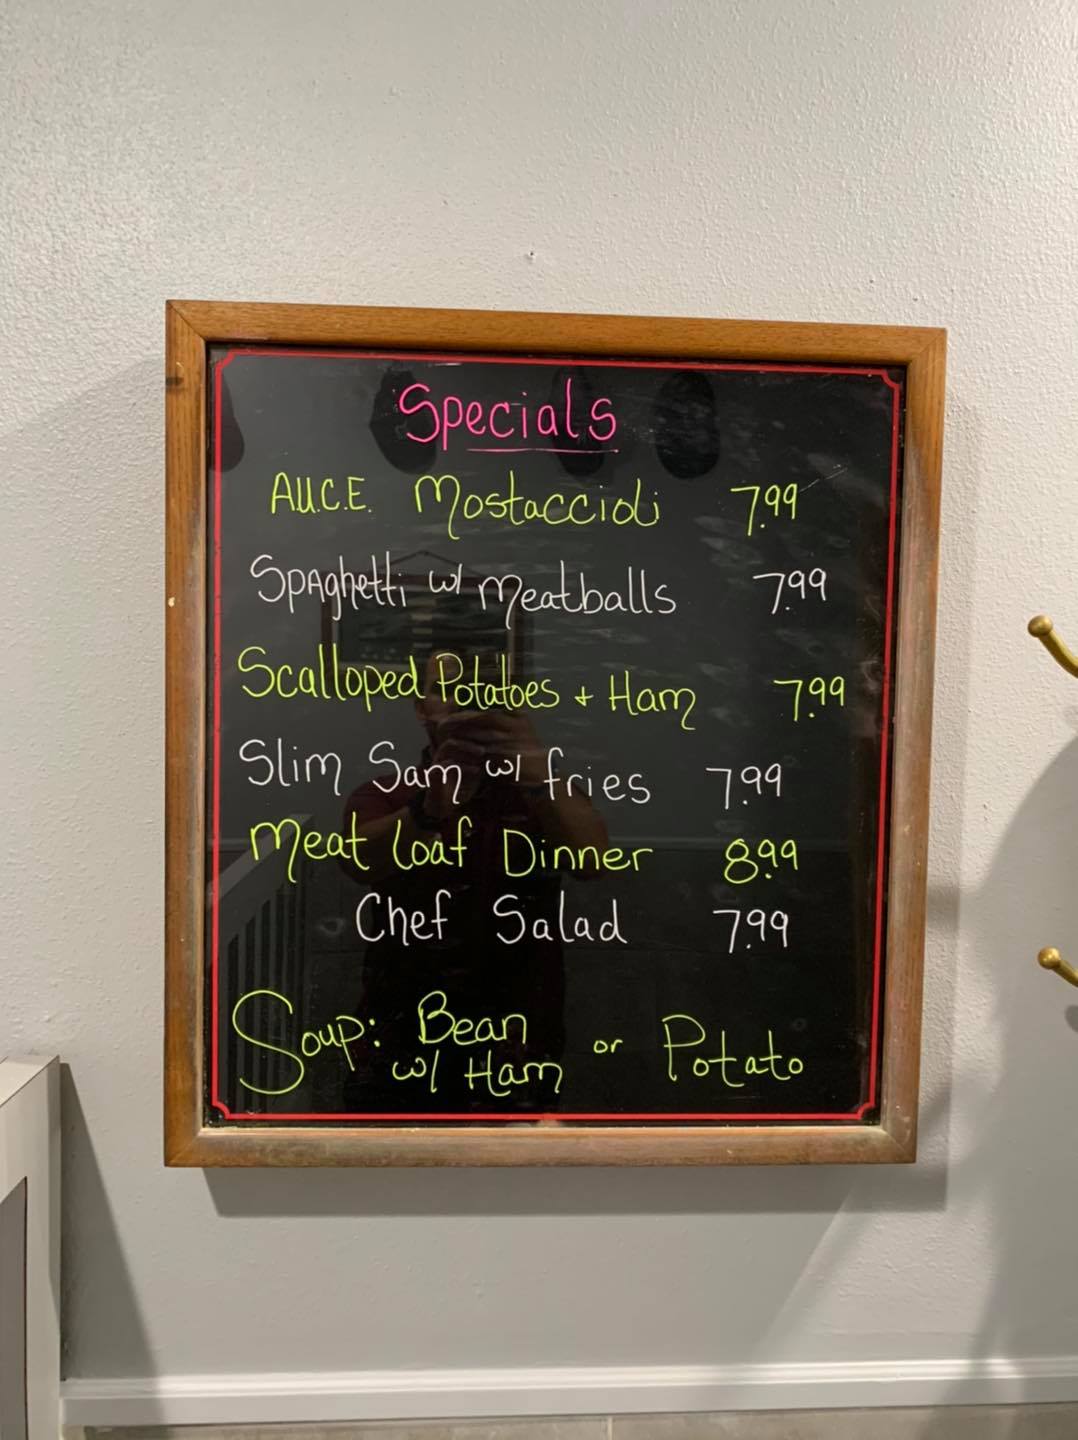 Specials
A.U.C.E. Mostaccioli 7.99
Spaghetti w/ Meatballs 7.99
Scalloped Potatoes + Ham 7.99
Slim Sam w/ fries 7.99
Meat loaf Dinner 8.99
Chef Salad 7.99
Soup: Bean w/ Ham or Potato